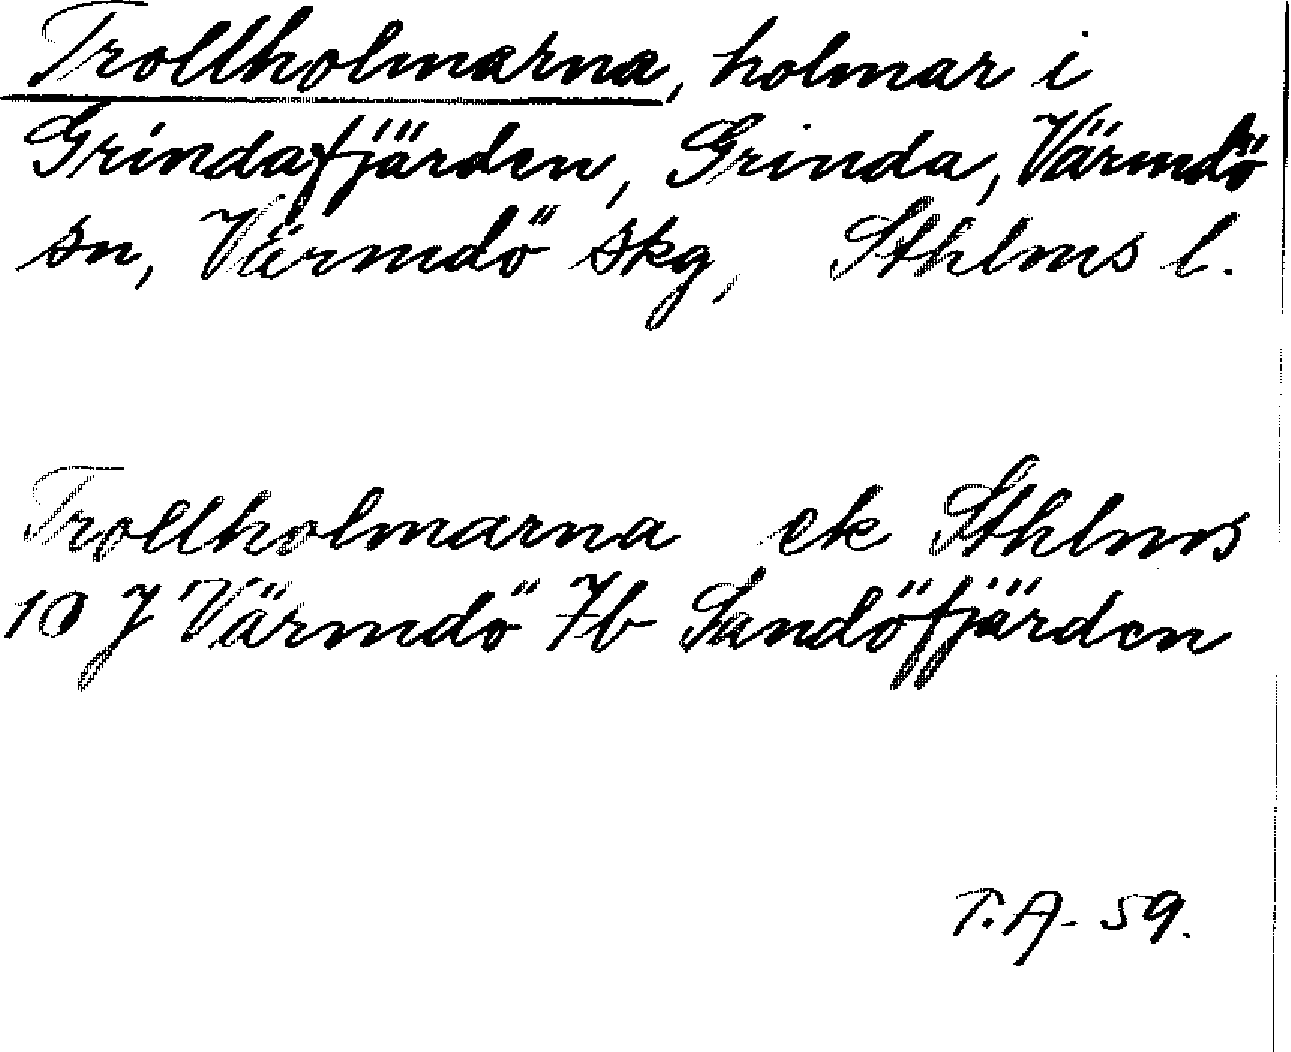 Trollholmarna, holmar i
Grindafjärden, Grinda, Värmdö
sn, Värmdö skg, Sthlms l.
Trollholmarna ek Sthlms
10 J Värmdö 7b Sandöfjärden
T.A. 59.